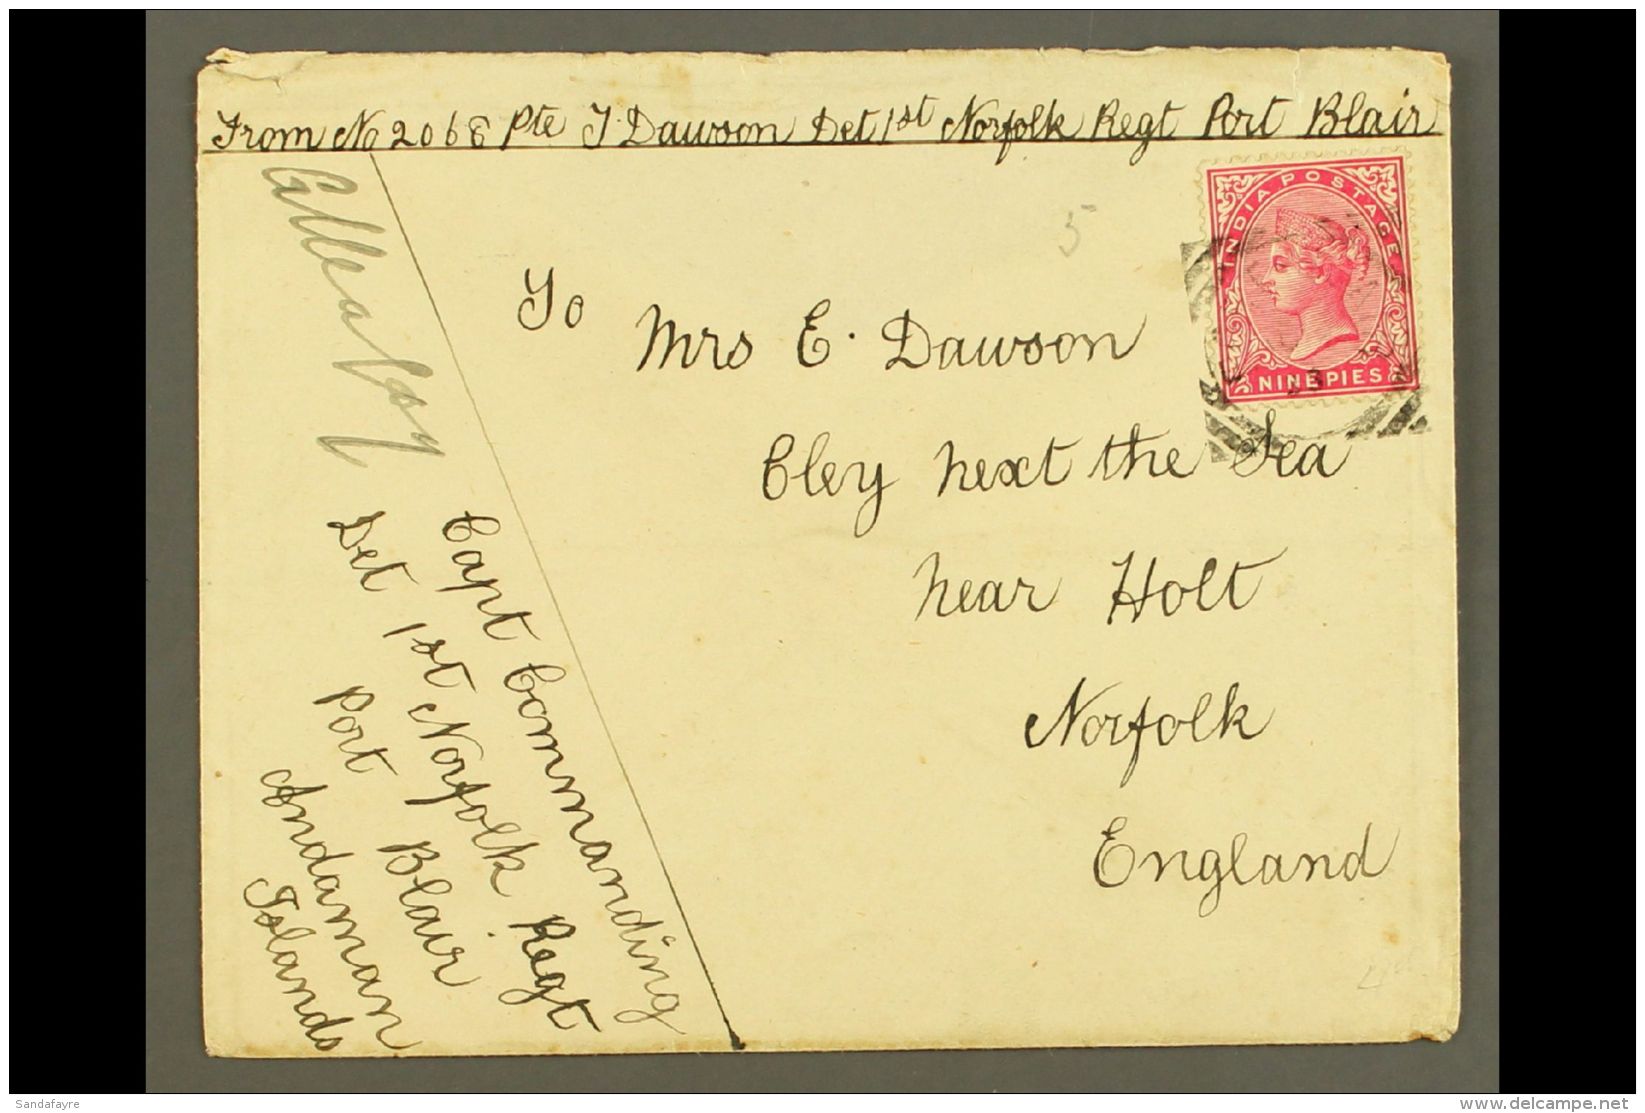 From No 2068 Pte J. Dawson Det 1st Norfolk Regt Port Blair
INDIA POSTAGE
NINE PIES
5
To
Mrs E. Dawson
Cley next the Sea
near Holt
Norfolk
England
Capt Commanding
Det 1st Norfolk Regt
Port Blair
Andaman
Islands
Sandafayre
www.delcampe.net